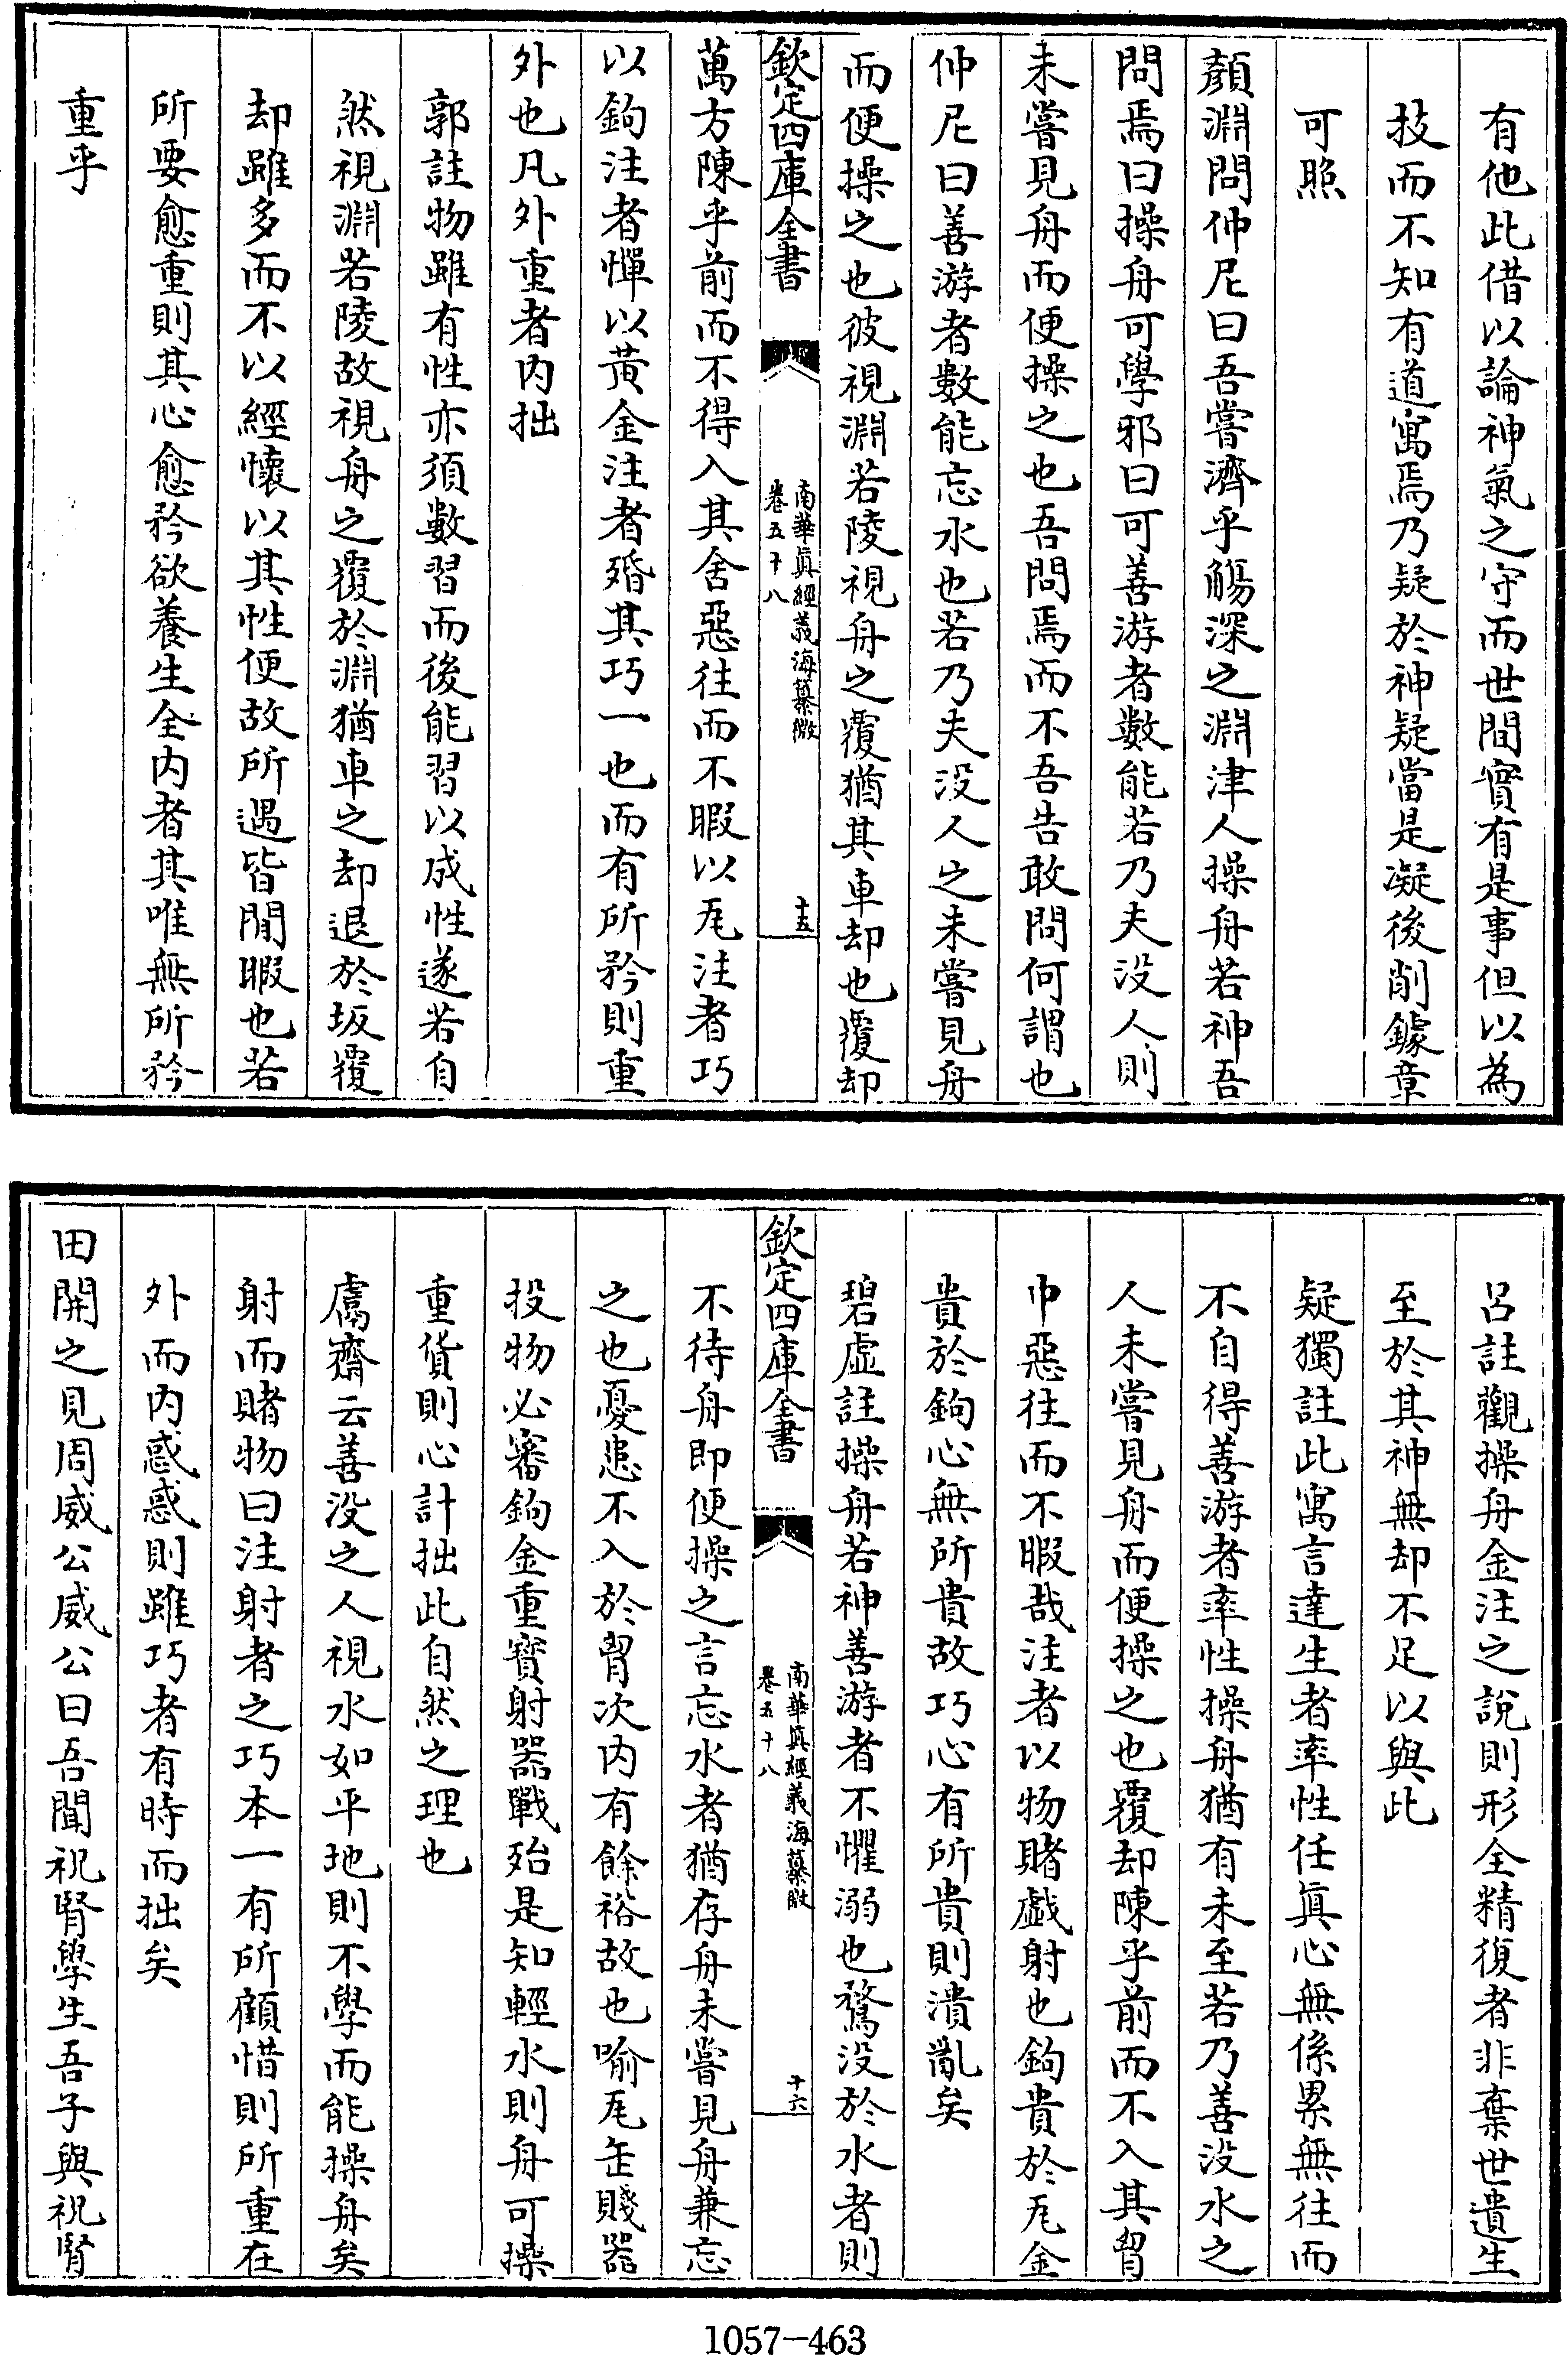 有他此借以論神氣之守而世間實有是事但以為
技而不知有道寓焉乃疑於神疑當是凝後削鐻章
可照
顏淵問仲尼曰吾嘗濟乎觴深之淵津人操舟若神吾
問焉曰操舟可學邪曰可善游者數能若乃夫没人則
未嘗見舟而便操之也吾問焉而不吾告敢問何謂也
仲尼曰善游者數能忘水也若乃夫没人之未嘗見舟
而便操之也彼視淵若陵視舟之覆猶其車却也覆却
欽定四庫全書
南華真經義海纂微
卷五十八
十五
萬方陳乎前而不得入其舍惡往而不暇以瓦注者巧
以鉤注者憚以黄金注者殙其巧一也而有所矜則重
外也凡外重者内拙
郭註物雖有性亦須數習而後能習以成性遂若自
然視淵若陵故視舟之覆於淵猶車之却退於坂覆
却雖多而不以經懷以其性便故所遇皆閒暇也若
所要愈重則其心愈矜欲養生全内者其唯無所矜
重乎
吕註觀操舟金注之說則形全精復者非棄世遺生
至於其神無却不足以與此
疑獨註此寓言達生者率性任真心無係累無往而
不自得善游者率性操舟猶有未至若乃善没水之
人未嘗見舟而便操之也覆却陳乎前而不入其胷
巾惡往而不暇哉注者以物賭戯射也鉤貴於瓦金
貴於鉤心無所貴故巧心有所貴則潰亂矣
碧虚註操舟若神善游者不懼溺也鶩没於水者則
欽定四庫全書
南華真經義海纂微
卷五十八
十六
不待舟即便操之言忘水者猶存舟未嘗見舟兼忘
之也憂患不入於胷次内有餘裕故也喻瓦缶賤器
投物必審鉤金重寳射器戰殆是知輕水則舟可操
重貨則心計拙此自然之理也
鬳齋云善没之人視水如平地則不學而能操舟矣
射而賭物曰注射者之巧本一有所顧惜則所重在
外而内惑惑則雖巧者有時而拙矣
田開之見周威公威公曰吾聞祝腎學生吾子與祝腎
1057-463